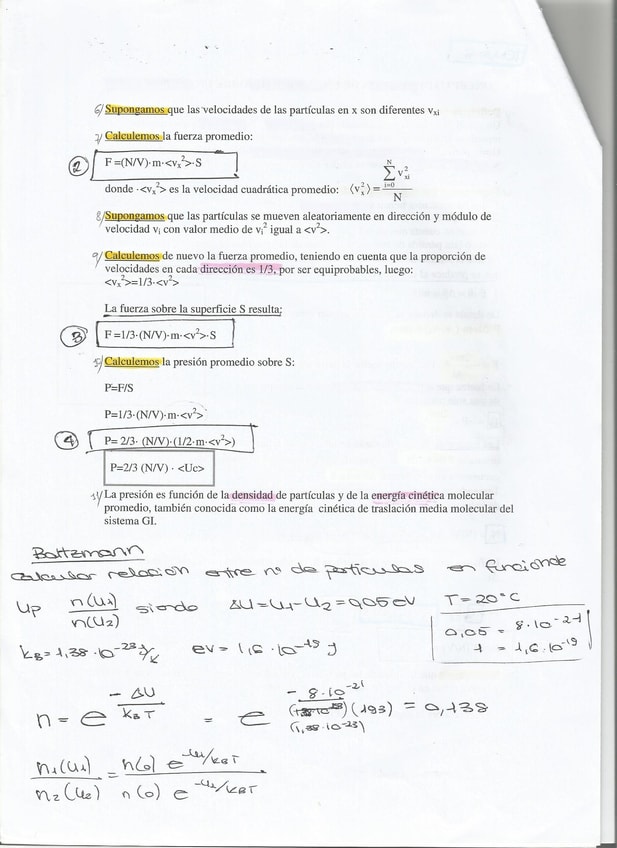 6/ Supongamos que las velocidades de las partículas en x son diferentes vxi
7/ Calculemos la fuerza promedio:
2 F =(N/V)·m·<vx²>·S
donde ·<vx²> es la velocidad cuadrática promedio: ⟨vx²⟩ = Σ(i=0, N) vxi² / N
8/ Supongamos que las partículas se mueven aleatoriamente en dirección y módulo de
velocidad vi con valor medio de vi² igual a <v²>.
9/ Calculemos de nuevo la fuerza promedio, teniendo en cuenta que la proporción de
velocidades en cada dirección es 1/3, por ser equiprobables, luego:
<vx²>=1/3·<v²>
La fuerza sobre la superficie S resulta:
3 F =1/3·(N/V)·m·<v²>·S
Calculemos la presión promedio sobre S:
P=F/S
P=1/3·(N/V)·m·<v²>
4 P= 2/3· (N/V)·(1/2·m·<v²>)
P=2/3 (N/V) · <Uc>
11/ La presión es función de la densidad de partículas y de la energía cinética molecular
promedio, también conocida como la energía cinética de traslación media molecular del
sistema GI.
Boltzmann
Calcular relacion entre nº de partículas en función de
Up n(U1)/n(U2) siendo ΔU = U1 - U2 = 0,05 eV T = 20°C
0,05 = 8·10^-21
1 = 1,6·10^-19
kB = 1,38·10^-23 J/K eV = 1,6·10^-19 J
n = e^(-ΔU/kBT) = e^(-8·10^-21/(1,38·10^-23)(193)) = 0,138
n1(U1)/n2(U2) = n(0) e^(-U1/kBT) / n(0) e^(-U2/kBT)